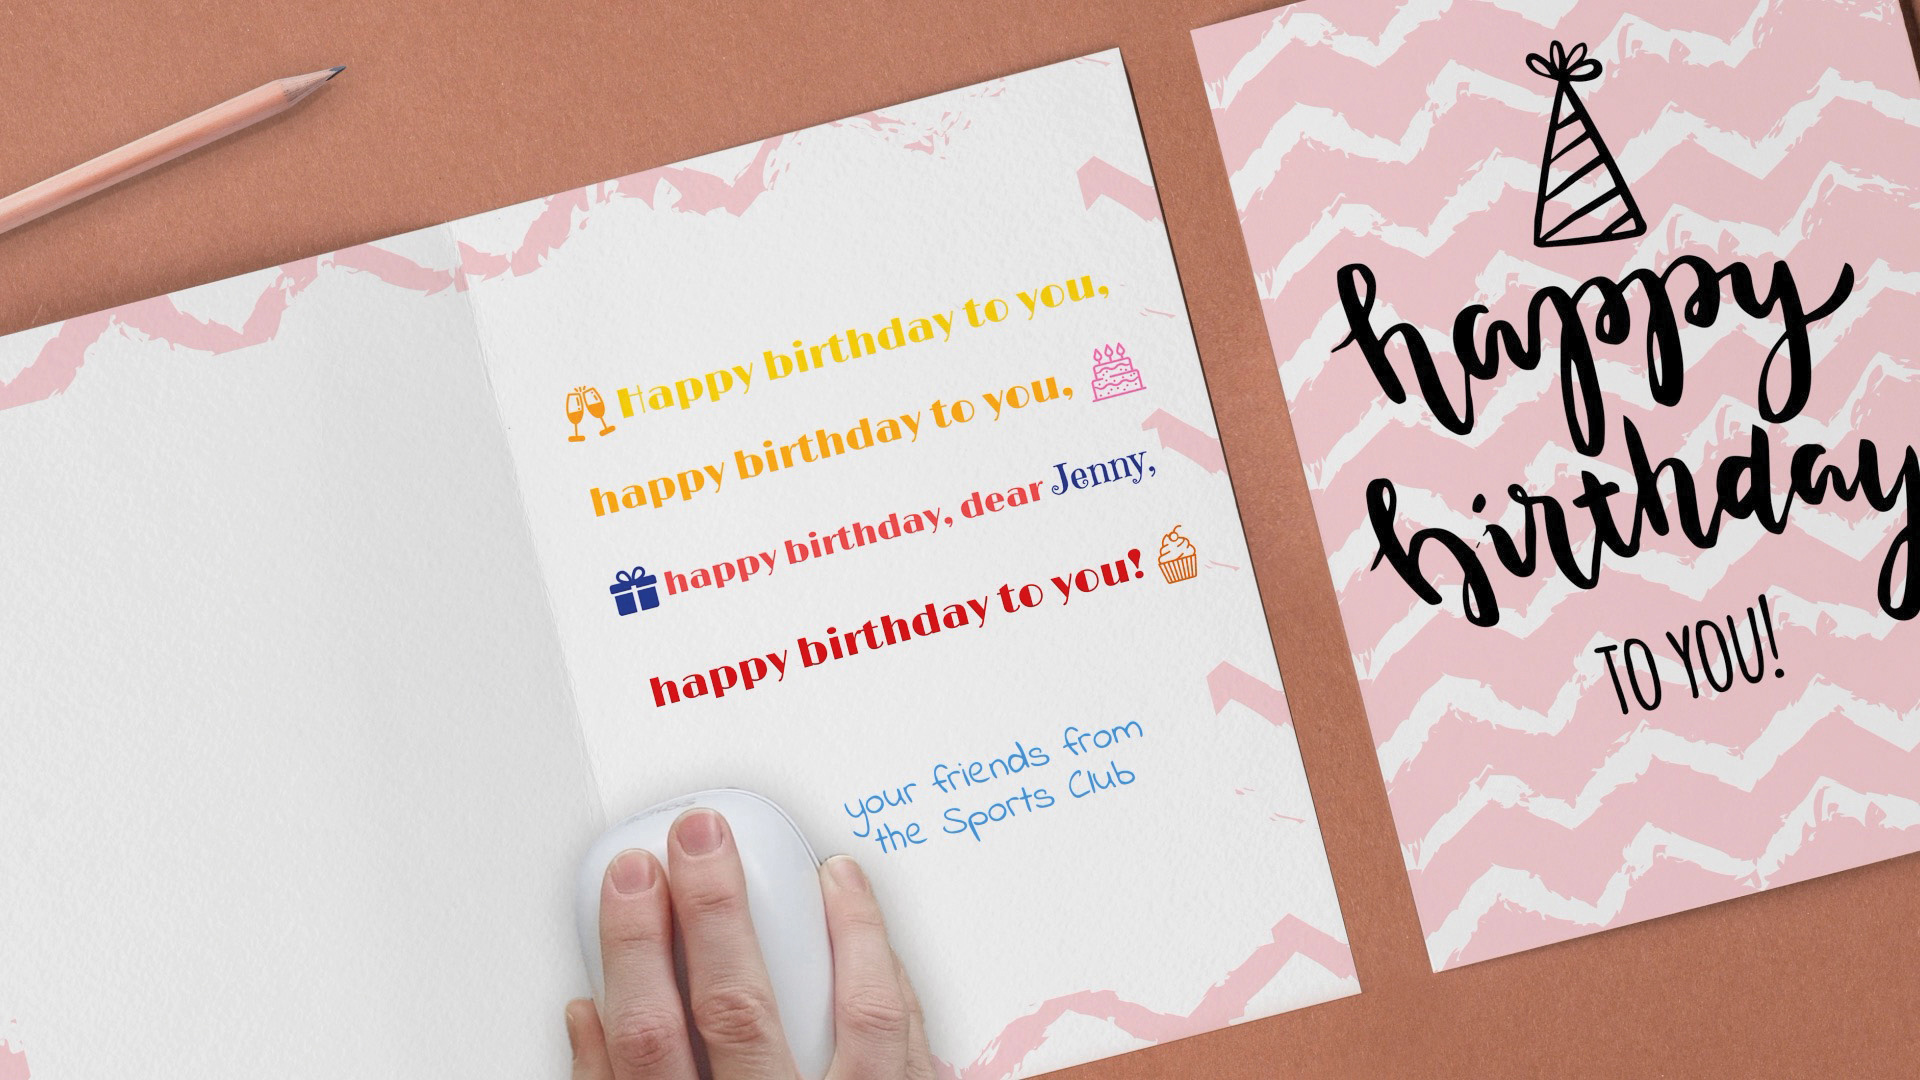 Happy birthday to you,
happy birthday to you,
happy birthday, dear Jenny,
happy birthday to you!
your friends from
the Sports Club
happy
birthday
TO YOU!